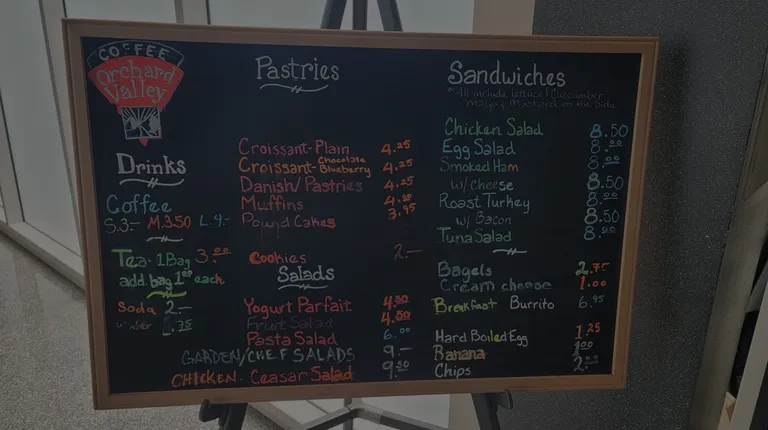 COFFEE
Orchard
Valley
Drinks
Coffee
S.3- M.3.50 L.4-
Tea-1Bag 3.00
add bag 1.00 each
Soda 2-
Pastries
Croissant-Plain 4.25
Croissant-Chocolate Blueberry 4.25
Danish/Pastries 4.25
Muffins
Pound Cakes 3.95
Cookies 2-
Salads
Yogurt Parfait 4.50
Fruit Salad 4.50
Pasta Salad 6.00
GARDEN/CHEF SALADS 9-
CHICKEN-Ceasar Salad 9.50
Sandwiches
*All include lettuce, Cucumber
Mayo & Mustard on the Side
Chicken Salad 8.50
Egg Salad 8.00
Smoked Ham 8.00
w/cheese 8.50
Roast Turkey 8.00
w/Bacon 8.50
Tuna Salad 8.00
Bagels 2.75
Cream cheese 1.00
Breakfast Burrito 6.95
Hard Boiled Egg 1.25
Banana 1.00
Chips 2.00